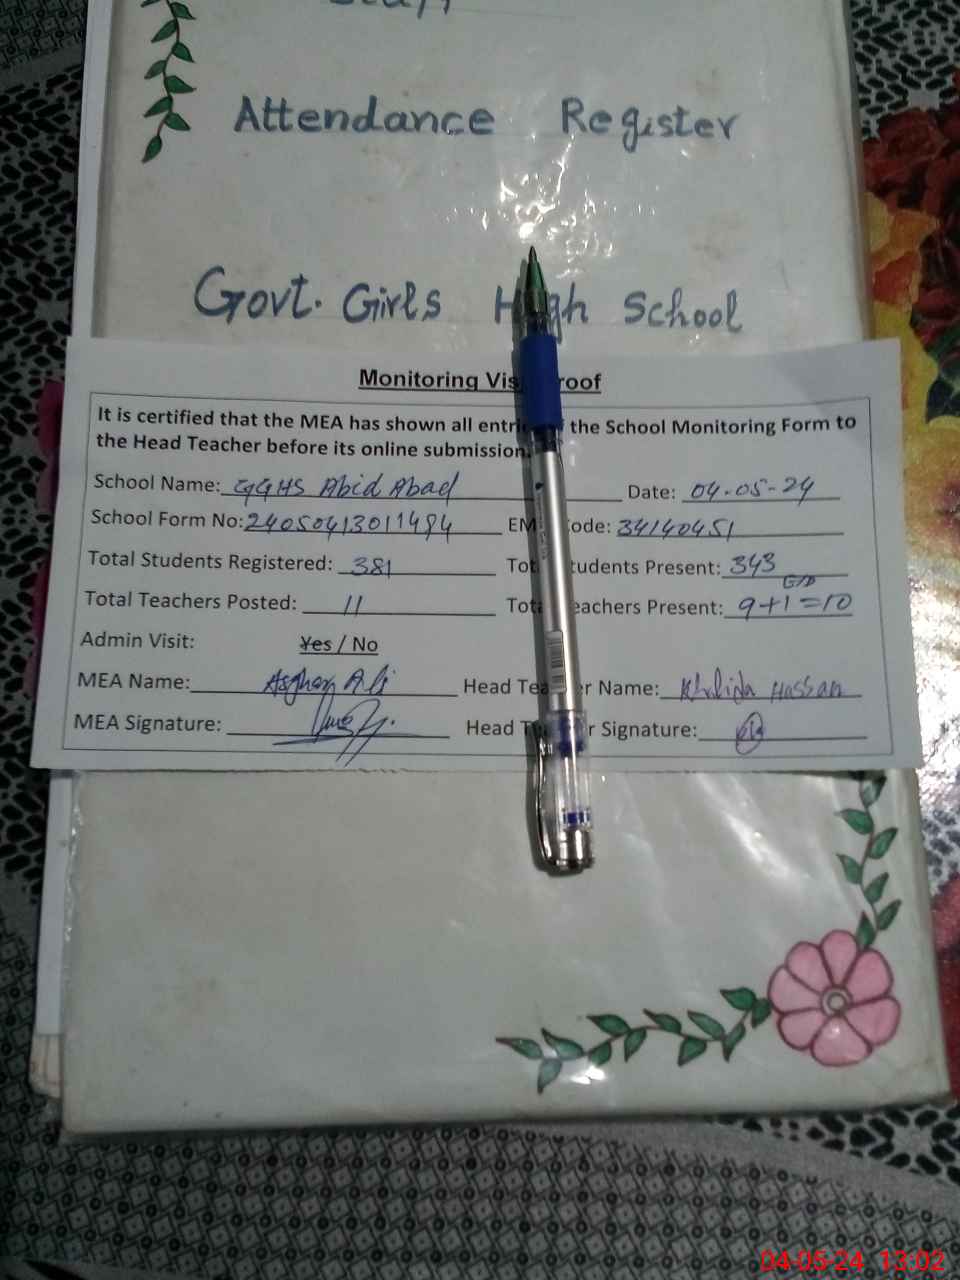 Staff
Attendance Register
Govt. Girls High School
Monitoring Visit Proof
It is certified that the MEA has shown all entries of the School Monitoring Form to
the Head Teacher before its online submission.
School Name: GGHS Abid Abad Date: 04-05-24
School Form No: 24050413011484 EMIS Code: 34140451
Total Students Registered: 381 Total Students Present: 343
Total Teachers Posted: 11 Total Teachers Present: 9+1=10
Admin Visit: Yes / No
MEA Name: Asghar Ali Head Teacher Name: Khalida Hassan
MEA Signature: Head Teacher Signature:
04-05-24 13:02